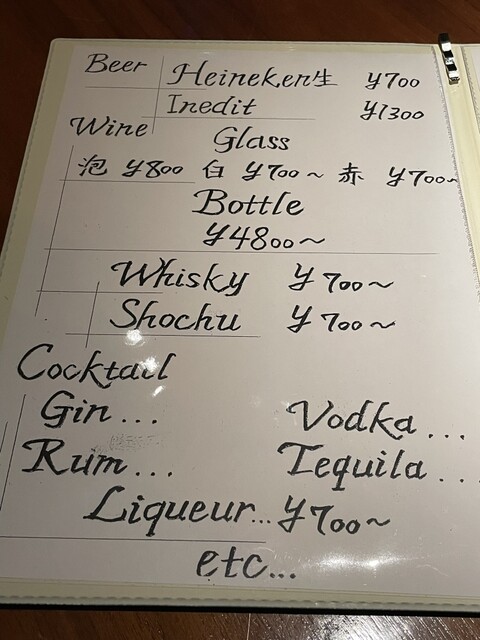 Beer Heineken生 ¥700
Inedit ¥1300
Wine Glass
泡 ¥800 白 ¥700~ 赤 ¥700~
Bottle
¥4800~
Whisky ¥700~
Shochu ¥700~
Cocktail
Gin... Vodka...
Rum... Tequila...
Liqueur... ¥700~
etc...